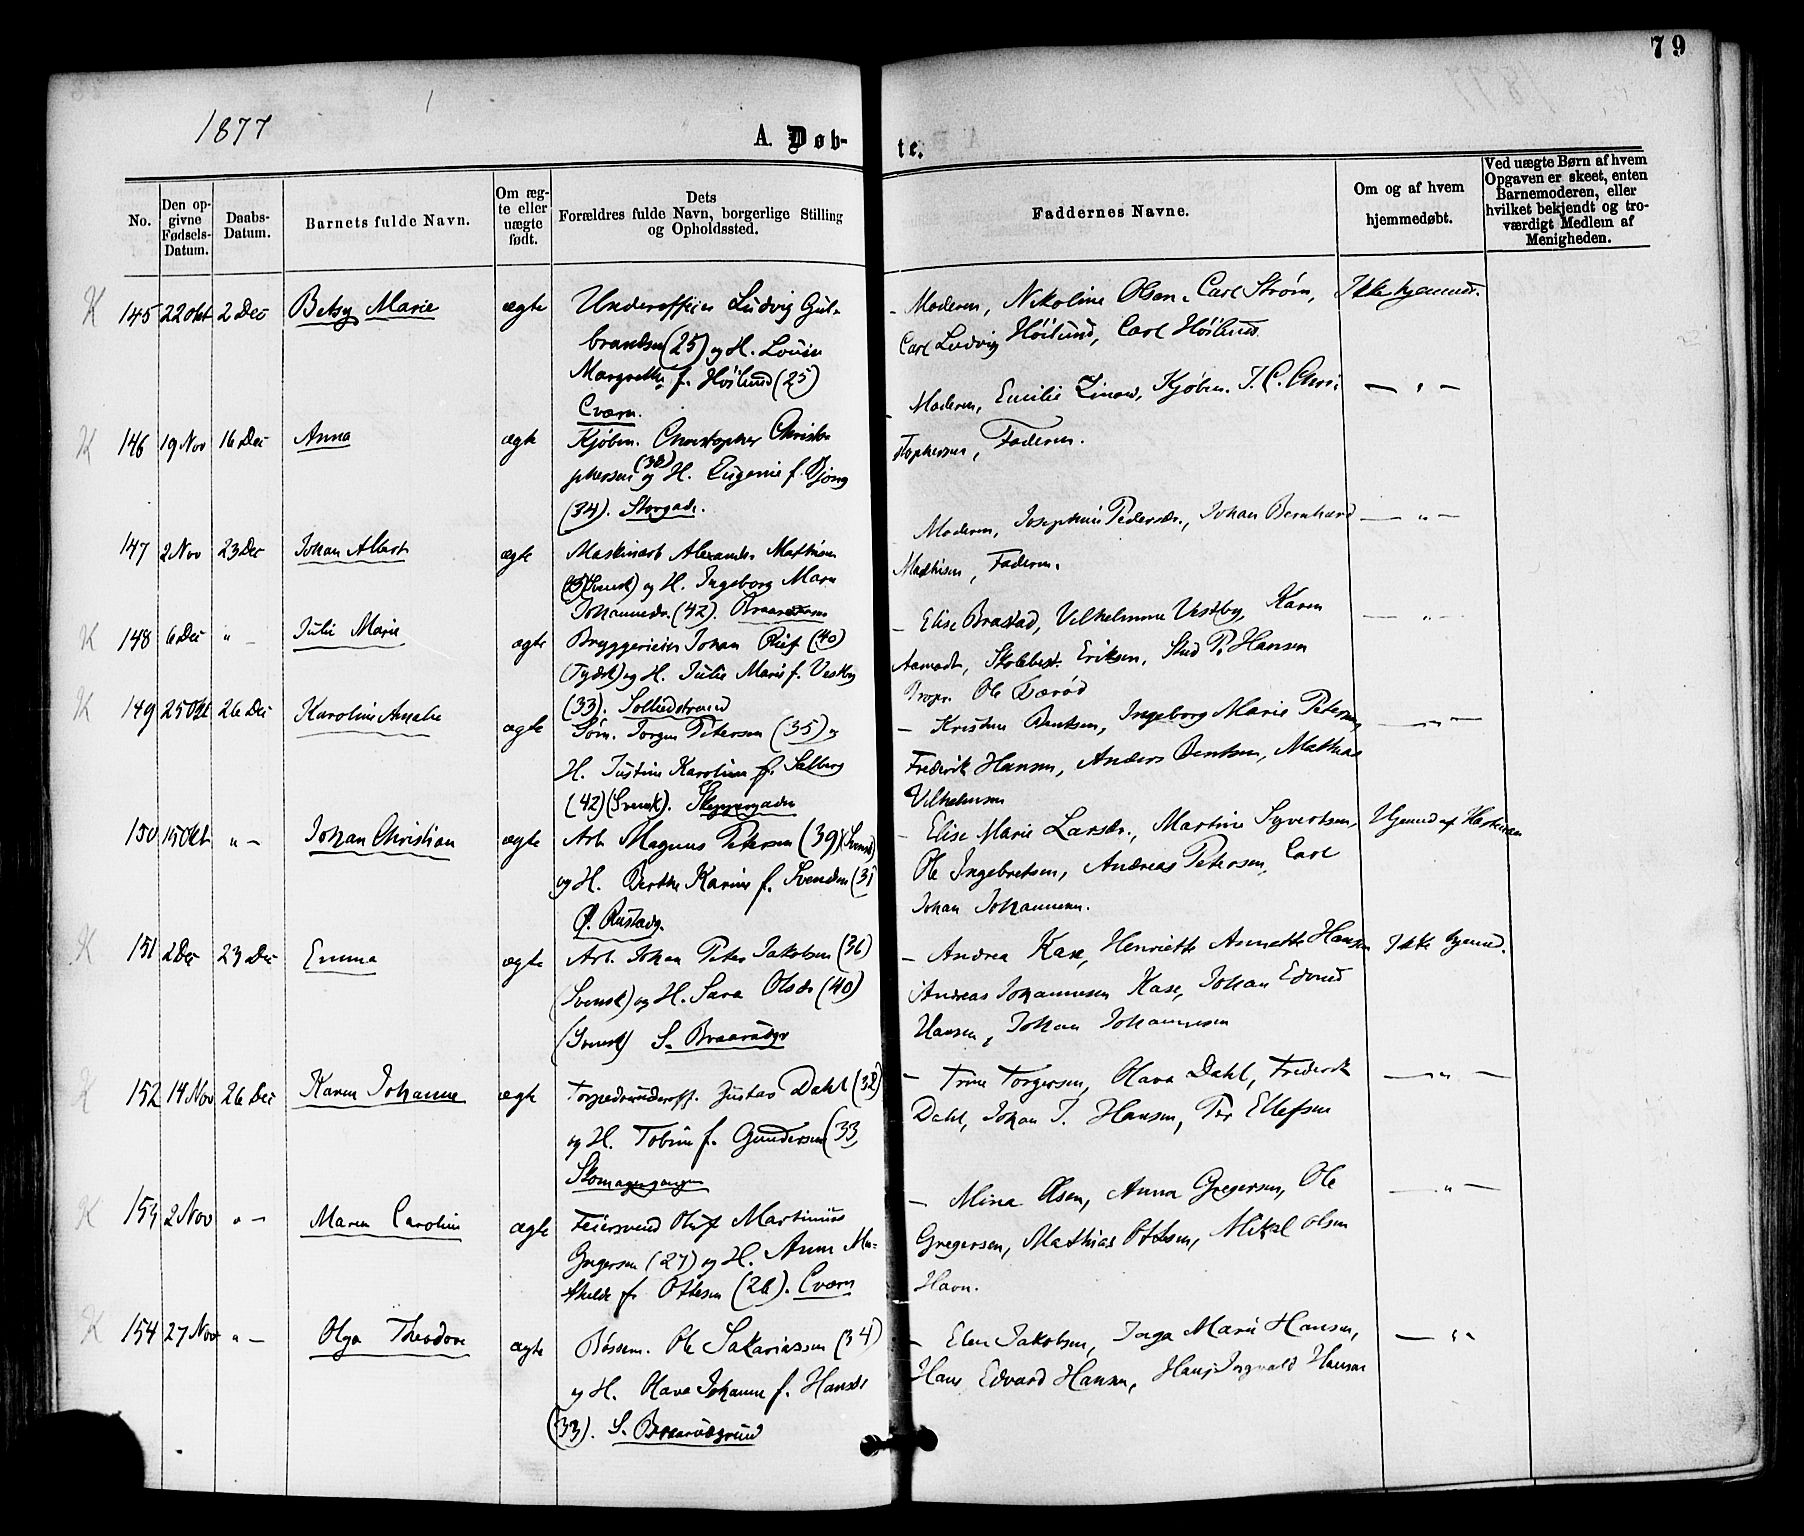 79
1877
A. Døbte.
No.
Den opgivne Fødsels-Datum.
Daabs-Datum.
Barnets fulde Navn.
Om ægte eller uægte født.
Dets Forældres fulde Navn, borgerlige Stilling og Opholdssted.
Faddernes Navne.
Om og af hvem hjemmedøbt.
Ved uægte Børn af hvem Opgaven er skeet, enten Barnemoderen, eller hvilket bekjendt og troværdigt Medlem af Menigheden.
K 145 22 Okt 2 Dec Betsy Marie ægte Underofficier Ludvig Gul-
brandsen (25) og H. Lovise
Margrethe f. Höilund (25)
Cværn.
Moderen, Nikoline Olsen, Carl Strøm, Ikke hjemmed.
Carl Ludvig Höilund, Carl Höilund
K 146 19 Nov 16 Dec Anna ægte Kjøbm. Christopher Christo-
phersen (38) og H. Eugenie f. Bjong
(34). Storgad.
Moderen, Emilie Kjøbm. J. C. Chri- — " —
stophersen, Faderen.
147 2 Nov 23 Dec Johan Albert ægte Maskinarb Alexander Mathisen
(Svensk) og H. Ingeborg Marie
Johannesdr. (42).
Moderen, Josephine Pedersdr., Johan Bernhard — " —
Mathisen, Faderen.
K 148 6 Dec " — Julie Marie ægte Bryggerieier Johan (40)
(Tydsk) og H. Julie Marie f. Vestby
(33).
— Elise Brastad, Vilhelmine Vestby, Karen — " —
Aamodt, Skolebest. Eriksen, Stud P. Hansen
Propr. Ole
K 149 25 Okt 26 Dec Karoline Amalie ægte Søm. Jørgen Petersen (35) og
H. Justine Karoline f. Salberg
(42) (Svensk). Skippergaden
— Kristine Bentsen, Ingeborg Marie Petersen, — " —
Frederik Hansen, Anders Bentsen, Mathias
Vilhelmsen
150 15 Okt " — Johan Christian ægte Arb. Magnus Petersen (39) (Svensk)
og H. Berthe Karine f. Svendsen (31
Ø.
— Elise Marie Larsdr., Martine Syvertsen, Hjemmd af
Ole Ingebretsen, Andreas Petersen, Carl
Johan Johannesen.
K 151 2 Dec 23 Dec Emma ægte Arb. Johan Peter Jakobsen (36)
(Svensk) og H. Sara Olsdr (40)
(Svensk) S.
— Andrea Kase, Henriette Annette Hansen Ikke hjemmd.
Andreas Johannesen Kase, Johan Edvard
Hansen, Johan Johannesen
K 152 14 Nov 26 Dec Karen Johanne ægte Torpedounderoff. Gustav Dahl (32)
og H. Tobine f. Gundersen (33,
— Trine Torgersen, Olava Dahl, Frederik — " —
Dahl, Johan J. Hansen, Per Ellefsen
K 153 2 Nov " — Maren Caroline ægte Feiersvend Oluf Martinius
Gregersen (27) og H. Anne Ma-
thilde f. Ottesen (26). Cværn
— Mina Olsen, Anna Gregersen, Ole — " —
Gregersen, Mathias Ottesen, Mikal Olsen
Havn.
K 154 27 Nov " — Olga Theodore ægte Bøssem. Ole Sakariassen (34)
og H. Olava Johanne f. Hansdr
(33). S. Braarudgrund
— Elen Jakobsen, Inga Marie Hansen, — " —
Hans Edvard Hansen, Hans Ingvald Hansen